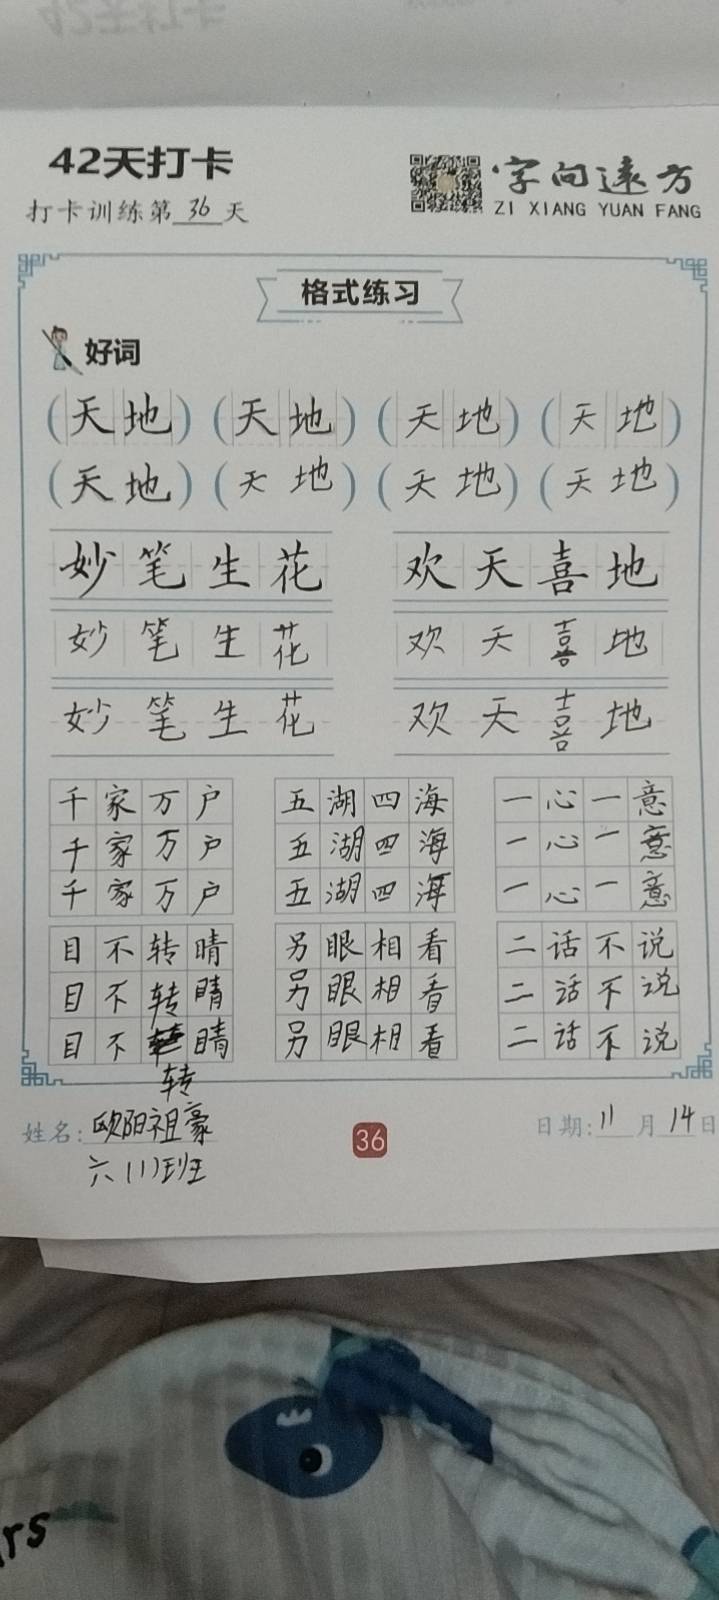 42天打卡
字向远方
打卡训练第36天
ZI XIANG YUAN FANG
格式练习
好词
(天地) (天地) (天地) (天地)
(天地) (天地) (天地) (天地)
妙笔生花 欢天喜地
妙笔生花 欢天喜地
妙笔生花 欢天喜地
千家万户 五湖四海 一心一意
千家万户 五湖四海 一心一意
千家万户 五湖四海 一心一意
目不转睛 另眼相看 二话不说
目不转睛 另眼相看 二话不说
目不 睛 另眼相看 二话不说
转
姓名:欧阳祖豪 36 日期:11月14日
六(1)班
rs